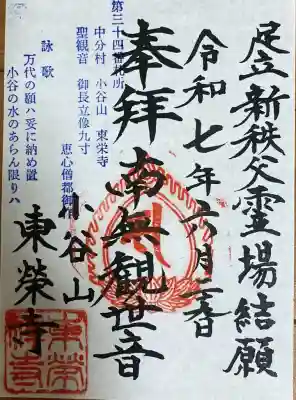 足立新秩父霊場結願
令和七年六月二日
奉拝 南無観世音
小谷山
東榮寺
第三十四番札所
中分村 小谷山 東栄寺
聖観音 御長立像九寸
恵心僧都御作
詠歌
万代の願ハ妥に納め置
小谷の水のあらん限りハ